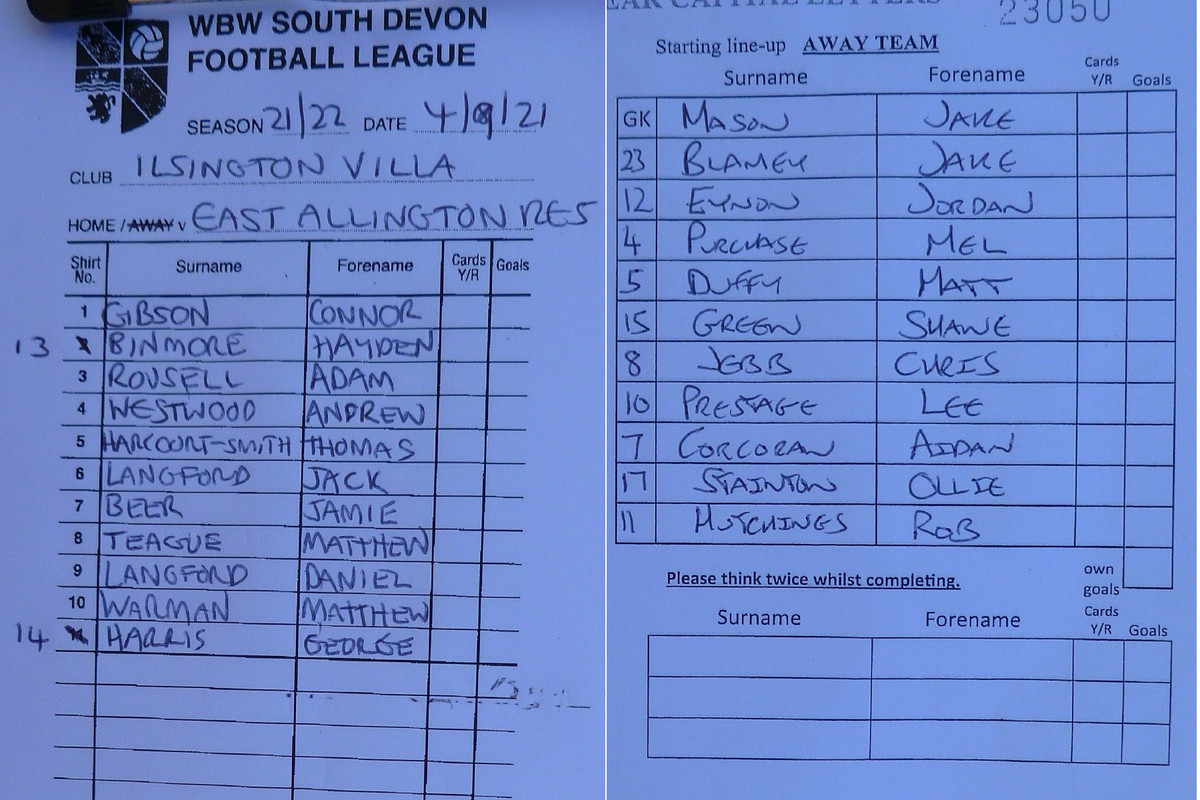 WBW SOUTH DEVON
FOOTBALL LEAGUE
SEASON 21/22 DATE 4/9/21
CLUB ILSINGTON VILLA
HOME / AWAY v EAST ALLINGTON RES
Shirt No. Surname Forename Cards Y/R Goals
1 GIBSON CONNOR
13 BINMORE HAYDEN
3 ROUSELL ADAM
4 WESTWOOD ANDREW
5 HARCOURT-SMITH THOMAS
6 LANGFORD JACK
7 BEER JAMIE
8 TEAGUE MATTHEW
9 LANGFORD DANIEL
10 WARMAN MATTHEW
14 HARRIS GEORGE
CAPITAL LETTERS 23050
Starting line-up AWAY TEAM
Surname Forename Cards Y/R Goals
GK MASON JAKE
23 BLAMEY JAKE
12 EYNON JORDAN
4 PURCHASE MEL
5 DUFFY MATT
15 GREEN SHANE
8 JEBB CHRIS
10 PRESTAGE LEE
7 CORCORAN AIDAN
17 STAINTON OLLIE
11 HUTCHINGS ROB
own goals
Please think twice whilst completing.
Surname Forename Cards Y/R Goals